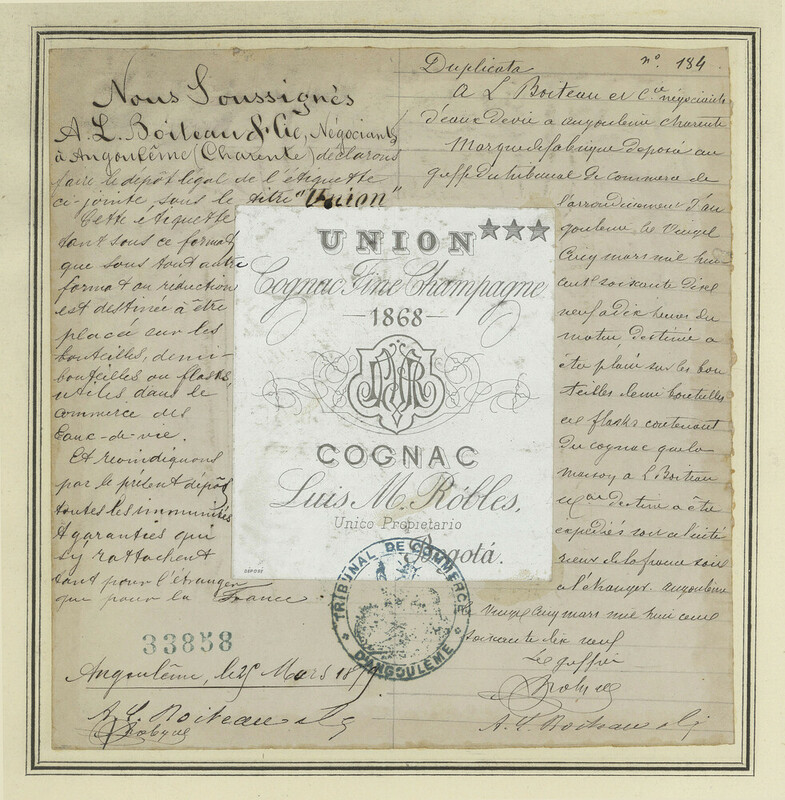 Nous Soussignés
A. L. Boiteau & Cie, Négociants
à Angoulême (Charente) déclarons
faire le dépôt légal de l'étiquette
ci-jointe sous le titre "Union"
Cette étiquette
tant sous ce format
que sous tout autre
format ou réduction
est destinée à être
placée sur les
bouteilles, demi-
bouteilles ou flasks,
utiles dans le
commerce des
Eaux-de-vie.
Et revindiquons
par le présent dépôt
toutes les immunités
& garanties qui
s'y rattachent
tant pour l'étranger
que pour la France.
33858
Angoulême, le 25 Mars 1879
A. L. Boiteau & Cie
UNION ★★★
Cognac Fine Champagne
1868
COGNAC
Luis M. Róbles,
Unico Propietario
Bogotá.
DEPOSE
TRIBUNAL DE COMMERCE
D'ANGOULÊME
Duplicata nº 184
A L Boiteau et Cie négociants
d'eaux de vie a angoulême charente
Marque de fabrique déposée au
greffe du tribunal de commerce de
l'arrondissement d'an
goulême le vingt
cinq mars mil huit
cent soixante dix
neuf a dix heures du
matin, destinée a
être placée sur les bou
teilles demi bouteilles
et flasks contenant
du cognac que la
maison A L Boiteau
& Cie destine a être
expédiés soit a l'inté
rieur de la france soit
a l'étranger. angoulême
vingt cinq mars mil huit cent
soixante dix neuf
Le greffier
A. L. Boiteau & Cie